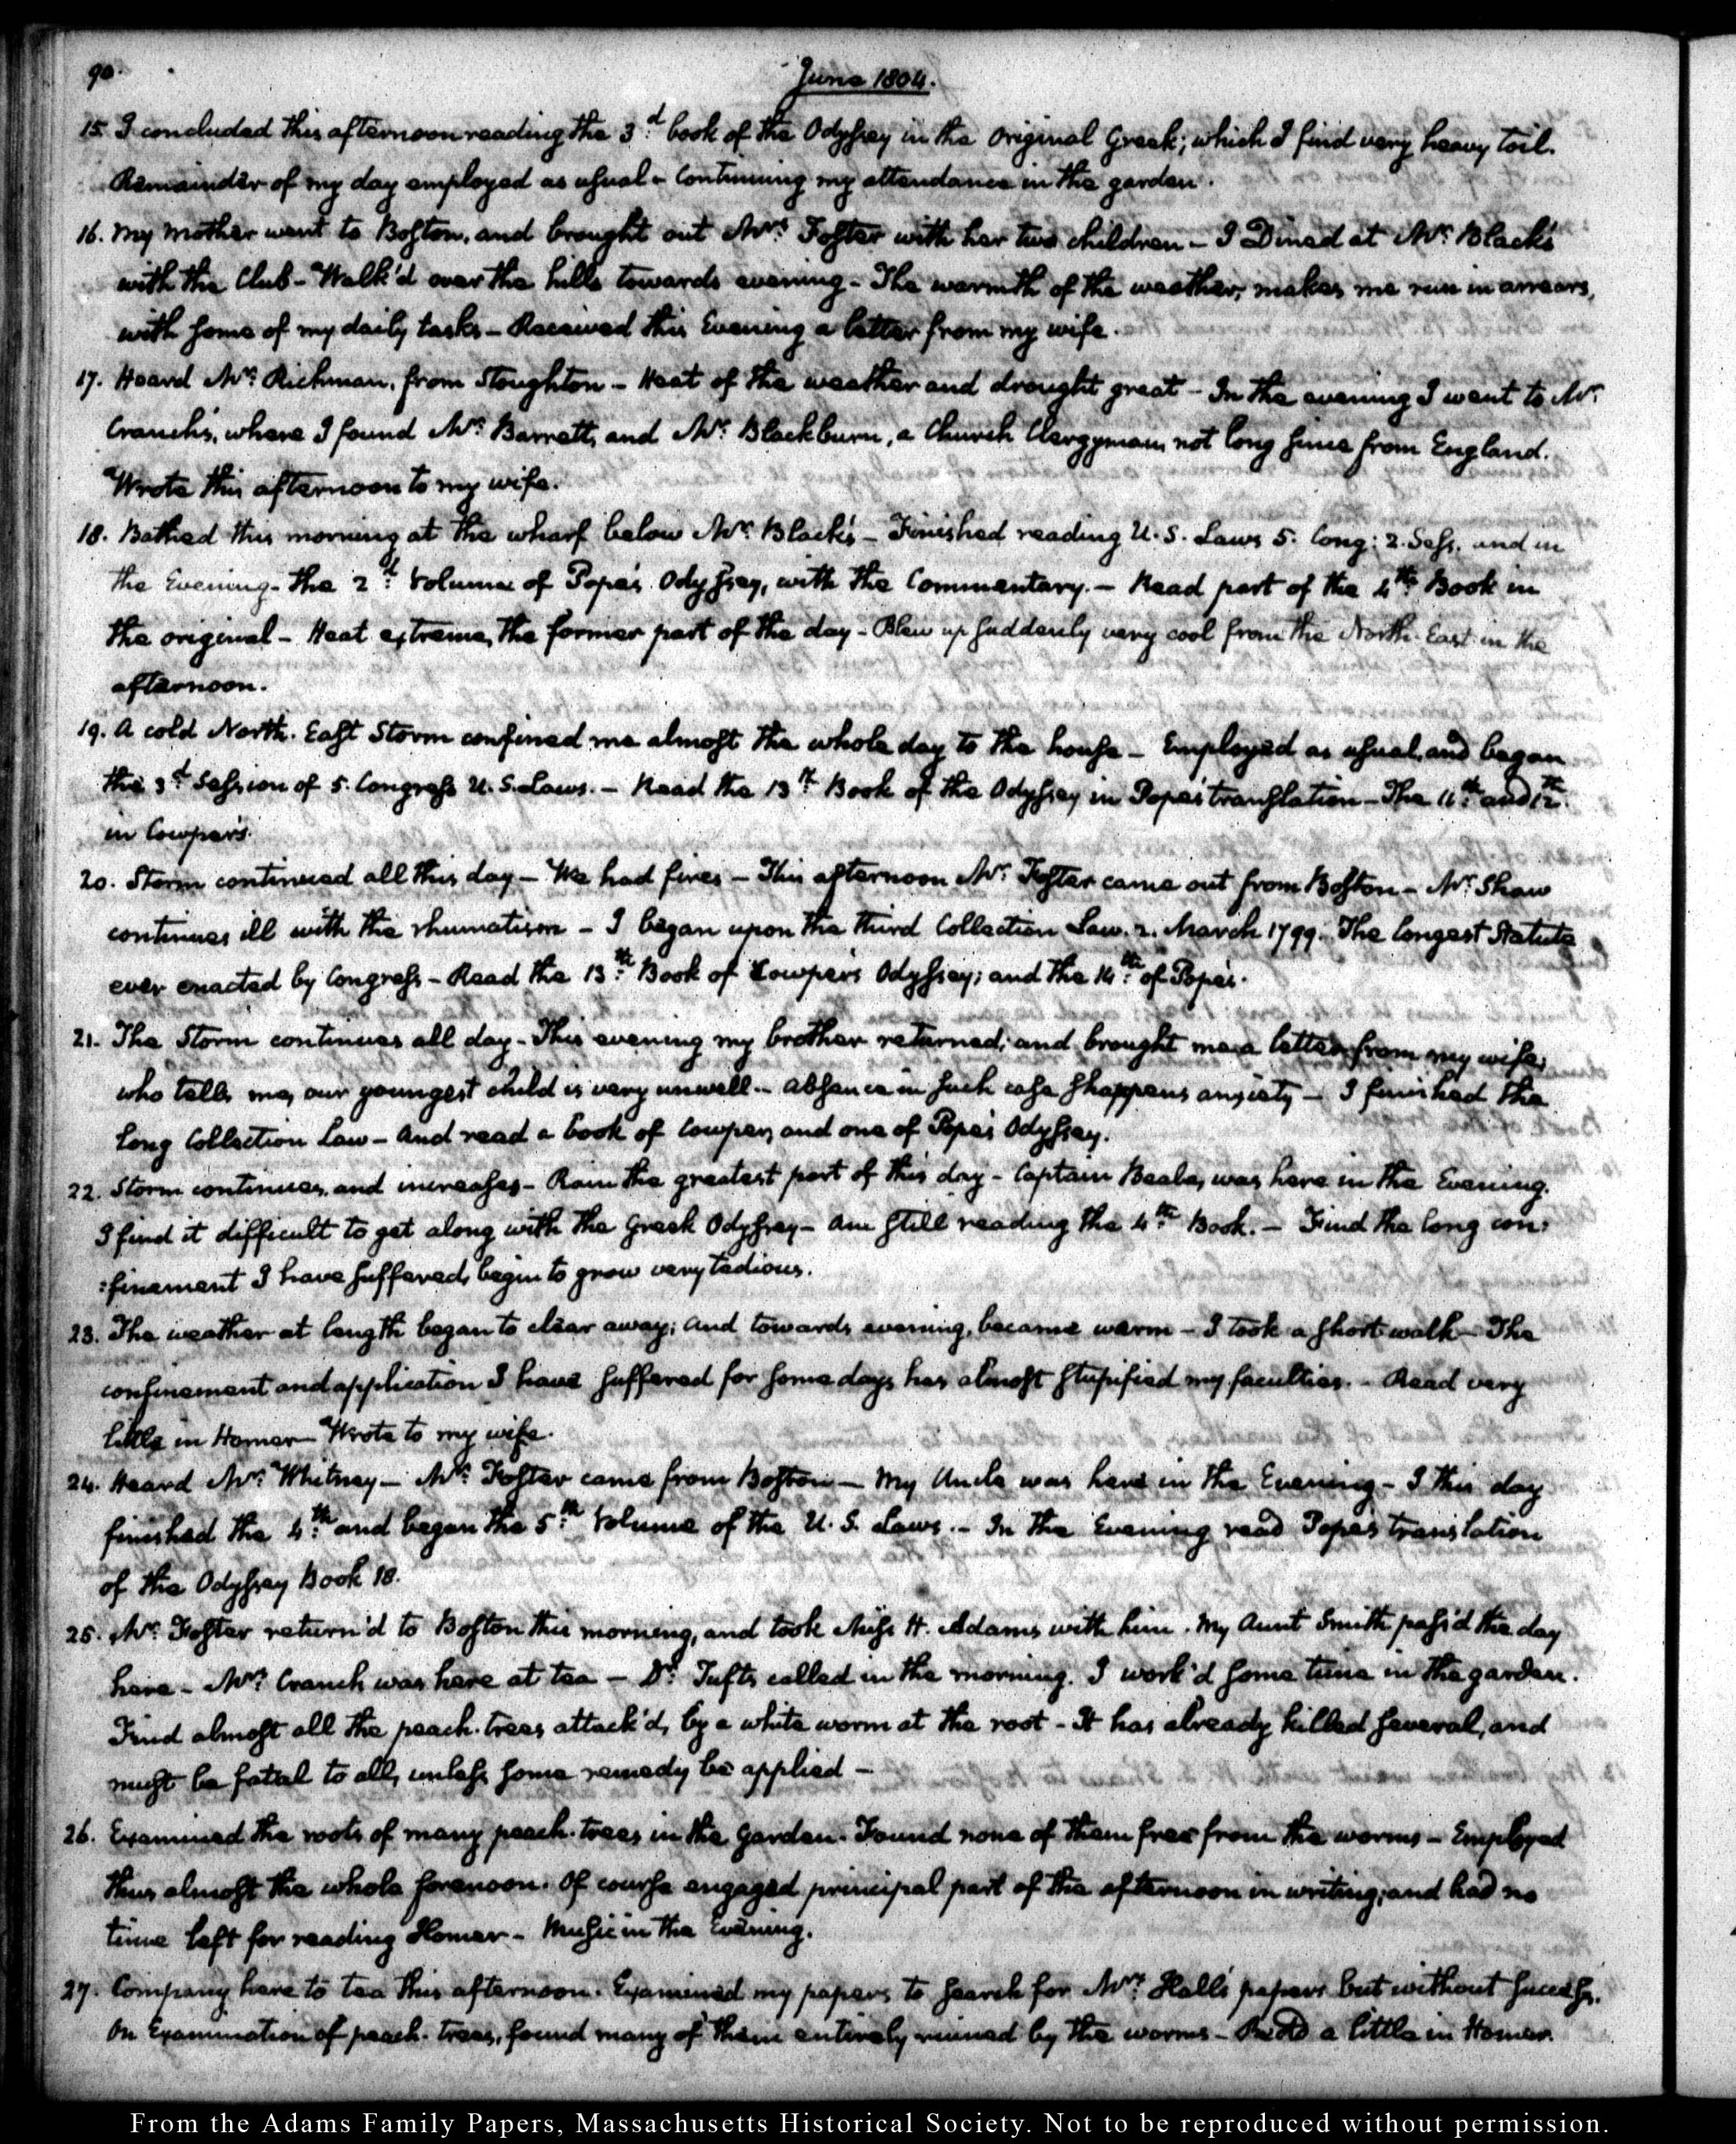 90.
June 1804.
15. I concluded this afternoon reading the 3.d book of the Odyssey in the original Greek; which I find very heavy toil.
Remainder of my day employed as usual - Continuing my attendance in the garden.
16. My Mother went to Boston, and brought out Mrs. Foster with her two children - I Dined at Mr. Black's
with the Club - Walk'd over the hills towards evening - The warmth of the weather, makes me run in arrears,
with some of my daily tasks - Received this Evening a letter from my wife.
17. Heard Mr. Richman, from Stoughton - Heat of the weather and drought great - In the evening I went to Mr.
Cranch's, where I found Mr. Barrett, and Mr. Blackburn, a Church Clergyman, not long since from England.
Wrote this afternoon to my wife.
18. Bathed this morning at the wharf below Mr. Black's - Finished reading U.S. Laws 5. Cong: 2. Sess. and in
the Evening - the 2.d Volume of Pope's Odyssey, with the Commentary. - Read part of the 4.th Book in
the original - Heat extreme, the former part of the day - Blew up suddenly very cool from the North-East in the
afternoon.
19. A cold North-East Storm confined me almost the whole day to the house - Employed as usual, and began
the 3.d Session of 5. Congress U.S. Laws. - Read the 13.th Book of the Odyssey in Pope's translation - The 11.th and 12.th
in Cowper's.
20. Storm continued all this day - We had fires - This afternoon Mr. Foster came out from Boston - Mr. Shaw
continues ill with the rhumatism - I began upon the third Collection Law. 2. March 1799. The longest Statute
ever enacted by Congress - Read the 13.th Book of Cowper's Odyssey; and the 14.th of Pope's.
21. The Storm continues all day - This evening my brother returned; and brought me a letter from my wife;
who tells me, our youngest child is very unwell - absence in such case sharpens anxiety - I finished the
long Collection Law - And read a book of Cowper, and one of Pope's Odyssey.
22. Storm continues, and increases - Rain the greatest part of this day - Captain Beale, was here in the Evening.
I find it difficult to get along with the Greek Odyssey - am still reading the 4.th Book. - Find the long con:
:finement I have suffered, begin to grow very tedious.
23. The weather at length began to clear away; and towards evening, became warm - I took a short walk - The
confinement and application I have suffered for some days has almost stupified my faculties. - Read very
little in Homer - Wrote to my wife.
24. Heard Mr. Whitney - Mr. Foster came from Boston - My Uncle was here in the Evening - I this day
finished the 4.th and began the 5.th Volume of the U.S. Laws. - In the Evening read Pope's translation
of the Odyssey Book 18.
25. Mr. Foster return'd to Boston this morning, and took Miss H. Adams with him. My Aunt Smith pass'd the day
here - Mrs. Cranch was here at tea - Dr. Tufts called in the morning. I work'd some time in the garden.
Find almost all the peach-trees attack'd, by a white worm at the root - It has already killed several, and
must be fatal to all, unless some remedy be applied -
26. Examined the roots of many peach-trees in the garden. Found none of them free from the worms - Employed
thus almost the whole forenoon. Of course engaged principal part of the afternoon in writing; and had no
time left for reading Homer - Music in the Evening.
27. Company here to tea this afternoon. Examined my papers to search for Mrs. Hall's papers but without success.
On Examination of peach-trees, found many of them entirely ruined by the worms - Read a little in Homer.
From the Adams Family Papers, Massachusetts Historical Society. Not to be reproduced without permission.